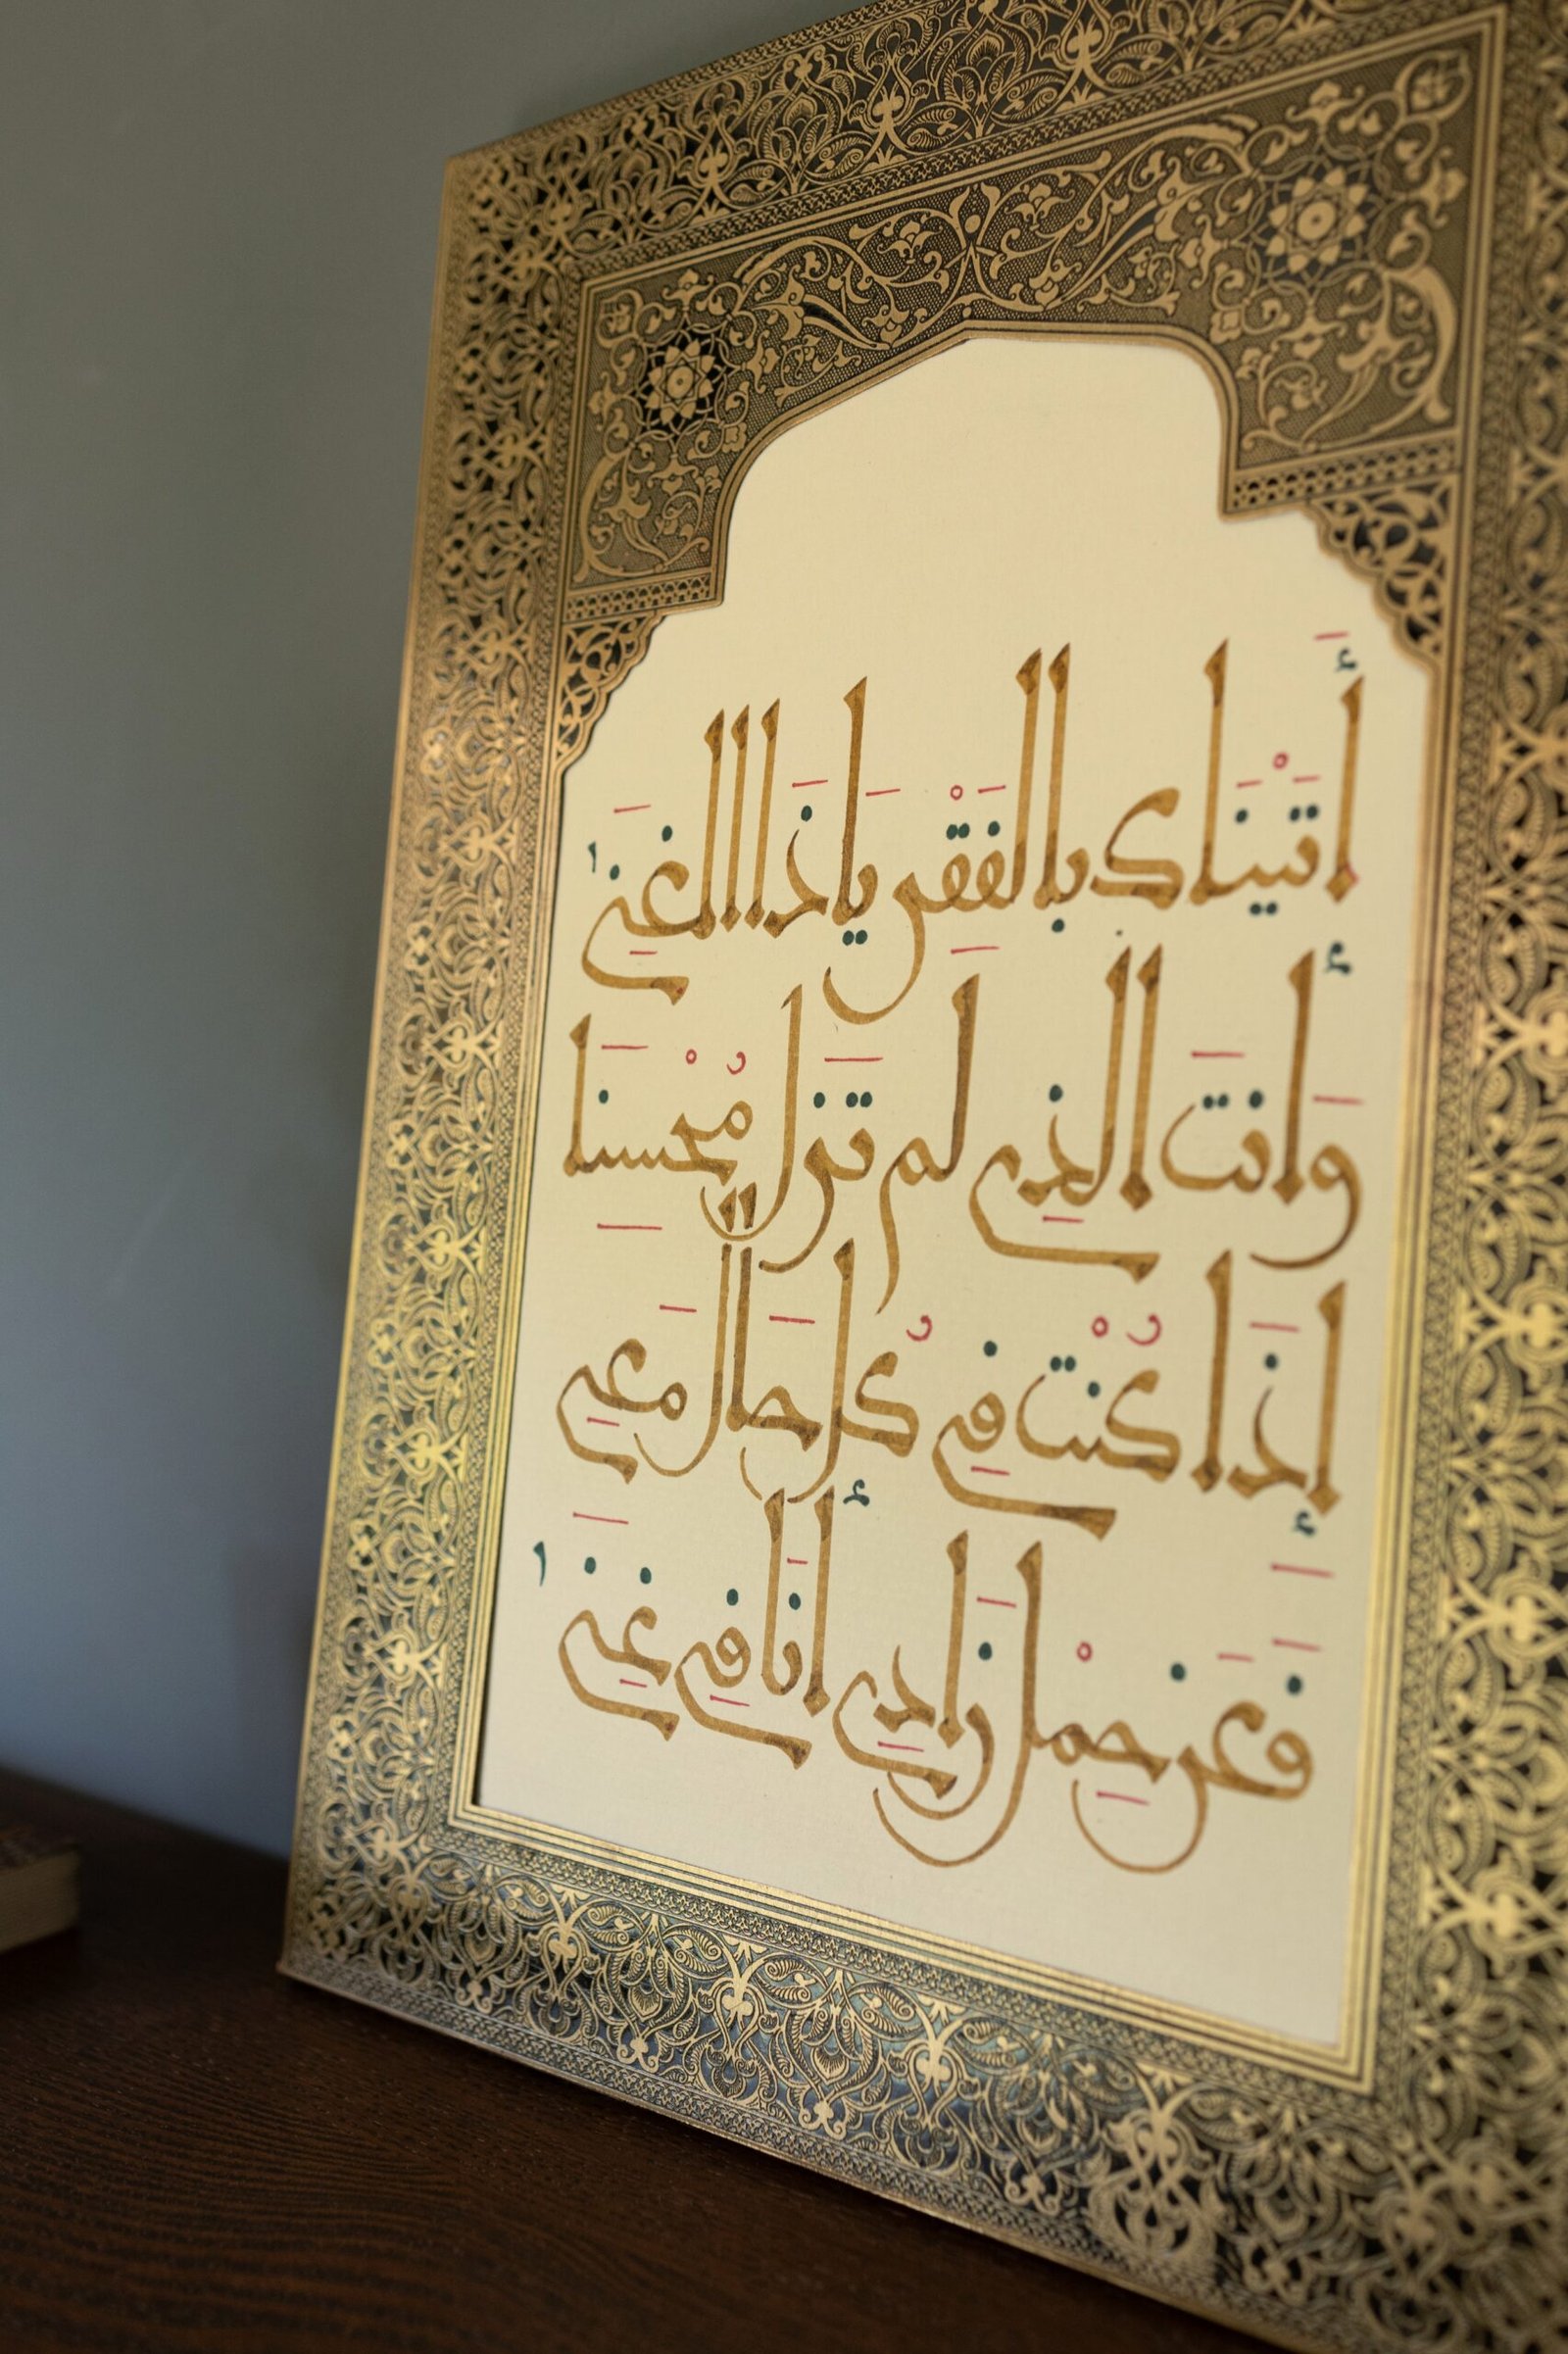 أَتَيْنَاك بالفَقْر يَا ذَا الغِنَى
وَأنتَ الَّذِي لَم تَزل مُحْسِنَا
إِذَا كُنْت فِي كُل حَال مَعِي
فَعَن حِمْل زَادِي أنَا فِي غِنَى